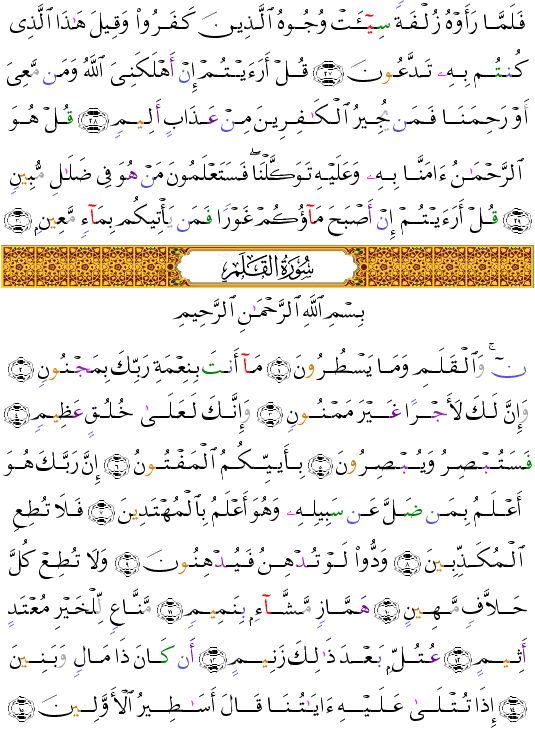 فَلَمَّا رَأَوْهُ زُلْفَةً سِيٓـَٔتْ وُجُوهُ ٱلَّذِينَ كَفَرُوا۟ وَقِيلَ هَـٰذَا ٱلَّذِى
كُنتُم بِهِۦ تَدَّعُونَ ﴿٢٧﴾ قُلْ أَرَءَيْتُمْ إِنْ أَهْلَكَنِىَ ٱللَّهُ وَمَن مَّعِىَ
أَوْ رَحِمَنَا فَمَن يُجِيرُ ٱلْكَـٰفِرِينَ مِنْ عَذَابٍ أَلِيمٍ ﴿٢٨﴾ قُلْ هُوَ
ٱلرَّحْمَـٰنُ ءَامَنَّا بِهِۦ وَعَلَيْهِ تَوَكَّلْنَا ۖ فَسَتَعْلَمُونَ مَنْ هُوَ فِى ضَلَـٰلٍ مُّبِينٍ
﴿٢٩﴾ قُلْ أَرَءَيْتُمْ إِنْ أَصْبَحَ مَآؤُكُمْ غَوْرًا فَمَن يَأْتِيكُم بِمَآءٍ مَّعِينٍۭ ﴿٣٠﴾
سُورَةُ القَلَمِ
بِسْمِ ٱللَّهِ ٱلرَّحْمَـٰنِ ٱلرَّحِيمِ
نٓ ۚ وَٱلْقَلَمِ وَمَا يَسْطُرُونَ ﴿١﴾ مَآ أَنتَ بِنِعْمَةِ رَبِّكَ بِمَجْنُونٍ ﴿٢﴾
وَإِنَّ لَكَ لَأَجْرًا غَيْرَ مَمْنُونٍ ﴿٣﴾ وَإِنَّكَ لَعَلَىٰ خُلُقٍ عَظِيمٍ ﴿٤﴾
فَسَتُبْصِرُ وَيُبْصِرُونَ ﴿٥﴾ بِأَييِّكُمُ ٱلْمَفْتُونُ ﴿٦﴾ إِنَّ رَبَّكَ هُوَ
أَعْلَمُ بِمَن ضَلَّ عَن سَبِيلِهِۦ وَهُوَ أَعْلَمُ بِٱلْمُهْتَدِينَ ﴿٧﴾ فَلَا تُطِعِ
ٱلْمُكَذِّبِينَ ﴿٨﴾ وَدُّوا۟ لَوْ تُدْهِنُ فَيُدْهِنُونَ ﴿٩﴾ وَلَا تُطِعْ كُلَّ
حَلَّافٍ مَّهِينٍ ﴿١٠﴾ هَمَّازٍ مَّشَّآءٍۭ بِنَمِيمٍ ﴿١١﴾ مَّنَّاعٍ لِّلْخَيْرِ مُعْتَدٍ
أَثِيمٍ ﴿١٢﴾ عُتُلٍّۭ بَعْدَ ذَٰلِكَ زَنِيمٍ ﴿١٣﴾ أَن كَانَ ذَا مَالٍ وَبَنِينَ
﴿١٤﴾ إِذَا تُتْلَىٰ عَلَيْهِ ءَايَـٰتُنَا قَالَ أَسَـٰطِيرُ ٱلْأَوَّلِينَ ﴿١٥﴾